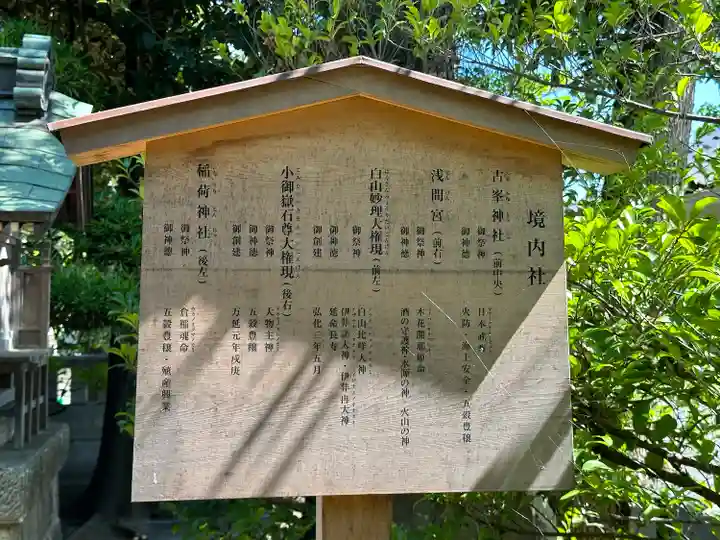 境内社
古峯神社（前中央）
御祭神　日本武尊
御神徳　火防・海上安全・五穀豊穣
浅間宮（前右）
御祭神　木花開耶姫命
御神徳　酒の守護神・水源の神　火山の神
白山妙理大権現（前左）
御祭神　白山比咩大神
伊弉諾大神・伊弉冉大神
御神徳　延命長寿
御創建　弘化二年五月
小御嶽石尊大権現（後右）
御祭神　大物主神
御神徳　五穀豊穣
御創建　万延元年戌庚
稲荷神社（後左）
御祭神　倉稲魂命
御神徳　五穀豊穣・殖産興業